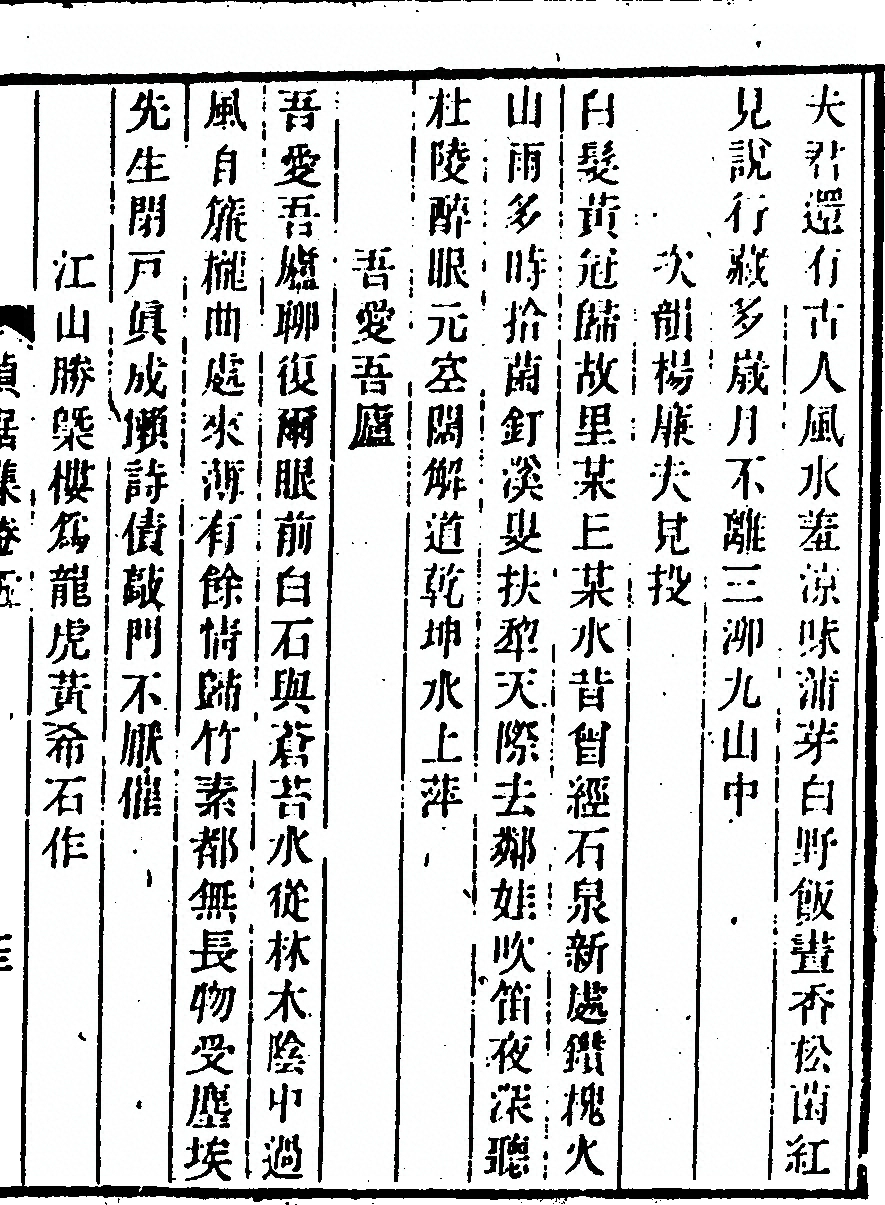 夫君還有古人風水羞涼味蒲芽白野飯晝香松菌紅
見說行藏多歲月不離三泖九山中
次韻楊廉夫見投
白髮黃冠歸故里某丘某水昔曾經石泉新處鑽槐火
山雨多時拾菌釘溪叟扶犂天際去鄰娃吹笛夜深聽
杜陵醉眼元空闊解道乾坤水上萍
吾愛吾廬
吾愛吾廬聊復爾眼前白石與蒼苔水從林木陰中過
風自簾櫳曲處來薄有餘情歸竹素都無長物受塵埃
先生閉戸眞成懶詩債敲門不厭催
江山勝槩樓爲龍虎黃希石作
貞居集卷五